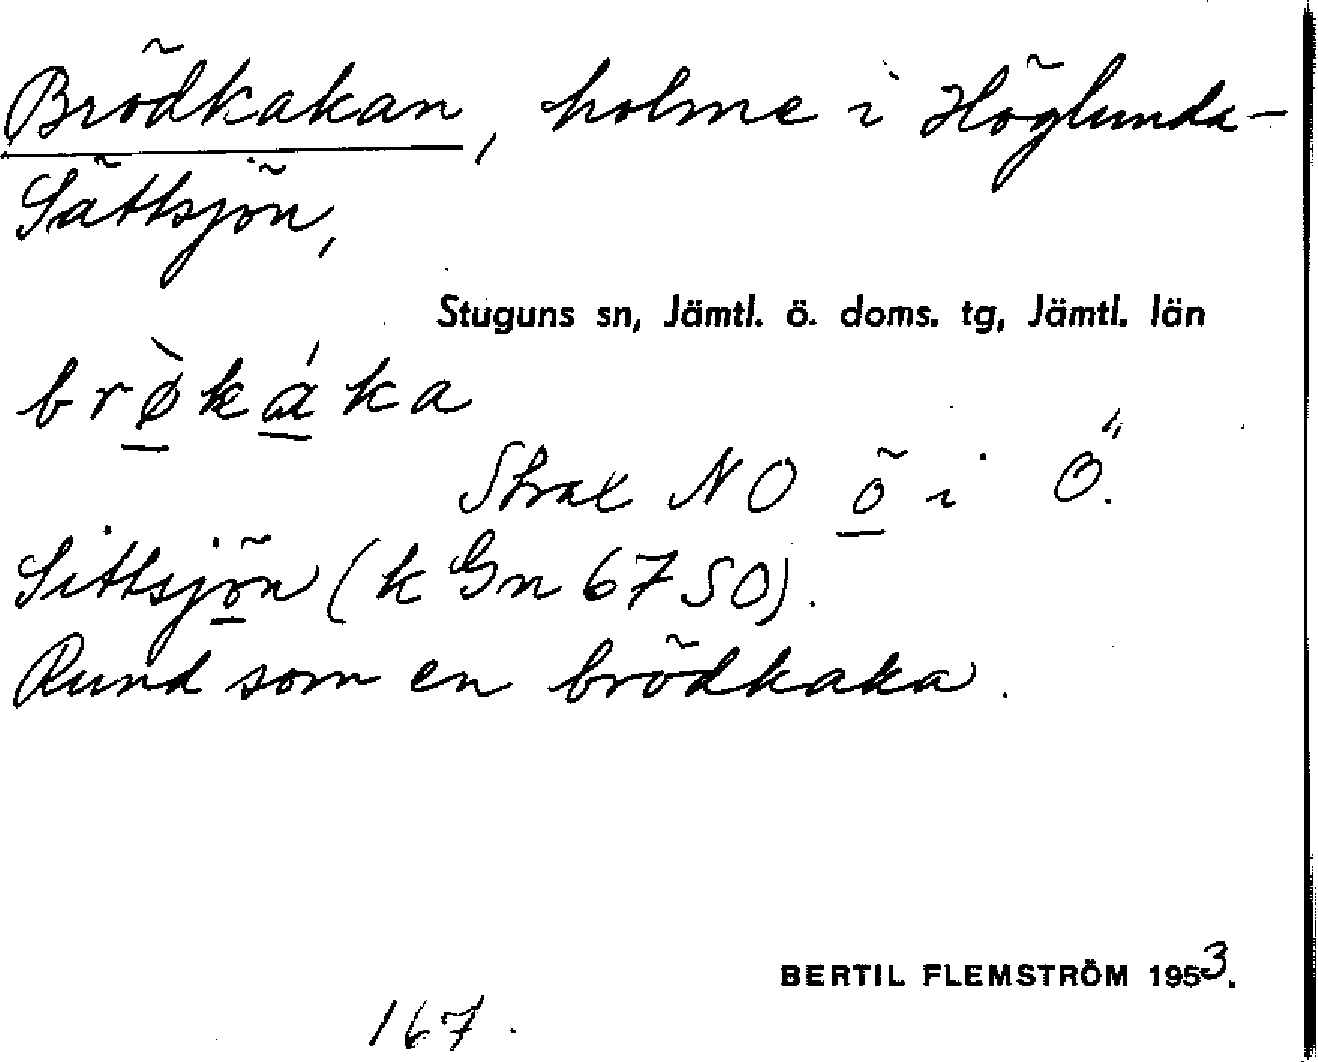 Brödkakan, holme i Höglunda-
Sättsjön,
Stuguns sn, Jämtl. ö. doms. tg, Jämtl. län
brø̀káka
Strax NO ö i Ö.
Sittsjön (k Gn 67 SO).
Rund som en brödkaka.
BERTIL FLEMSTRÖM 1953.
167.